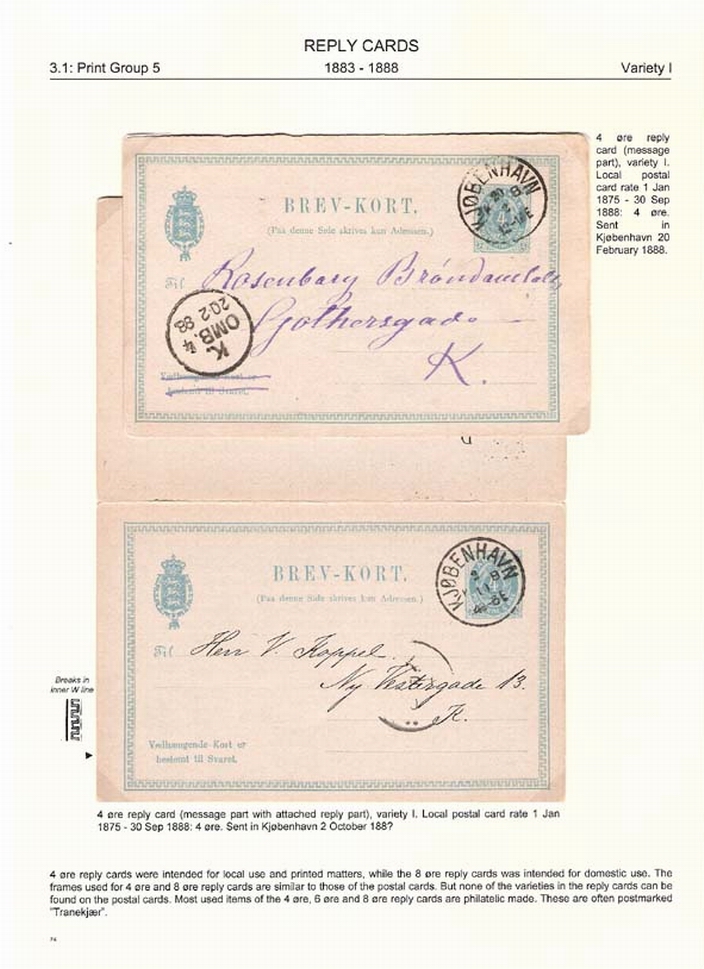 REPLY CARDS
3.1: Print Group 5 1883 - 1888 Variety I
4 øre reply
card (message
part), variety I.
Local postal
card rate 1 Jan
1875 - 30 Sep
1888: 4 øre.
Sent in
Kjøbenhavn 20
February 1888.
KJØBENHAVN
BREV-KORT.
(Paa denne Side skrives kun Adressen.)
Til Rosenberg
Gothersgade
K.
K.
OMB. 4
20·2·88
Vedhængende Kort er
bestemt til Svaret.
KJØBENHAVN
BREV-KORT.
(Paa denne Side skrives kun Adressen.)
Til Herr V. Koppel
Ny Vestergade 13.
K.
Vedhængende Kort er
bestemt til Svaret.
Breaks in
inner W line
4 øre reply card (message part with attached reply part), variety I. Local postal card rate 1 Jan
1875 - 30 Sep 1888: 4 øre. Sent in Kjøbenhavn 2 October 188?
4 øre reply cards were intended for local use and printed matters, while the 8 øre reply cards was intended for domestic use. The
frames used for 4 øre and 8 øre reply cards are similar to those of the postal cards. But none of the varieties in the reply cards can be
found on the postal cards. Most used items of the 4 øre, 6 øre and 8 øre reply cards are philatelic made. These are often postmarked
"Tranekjær".
74